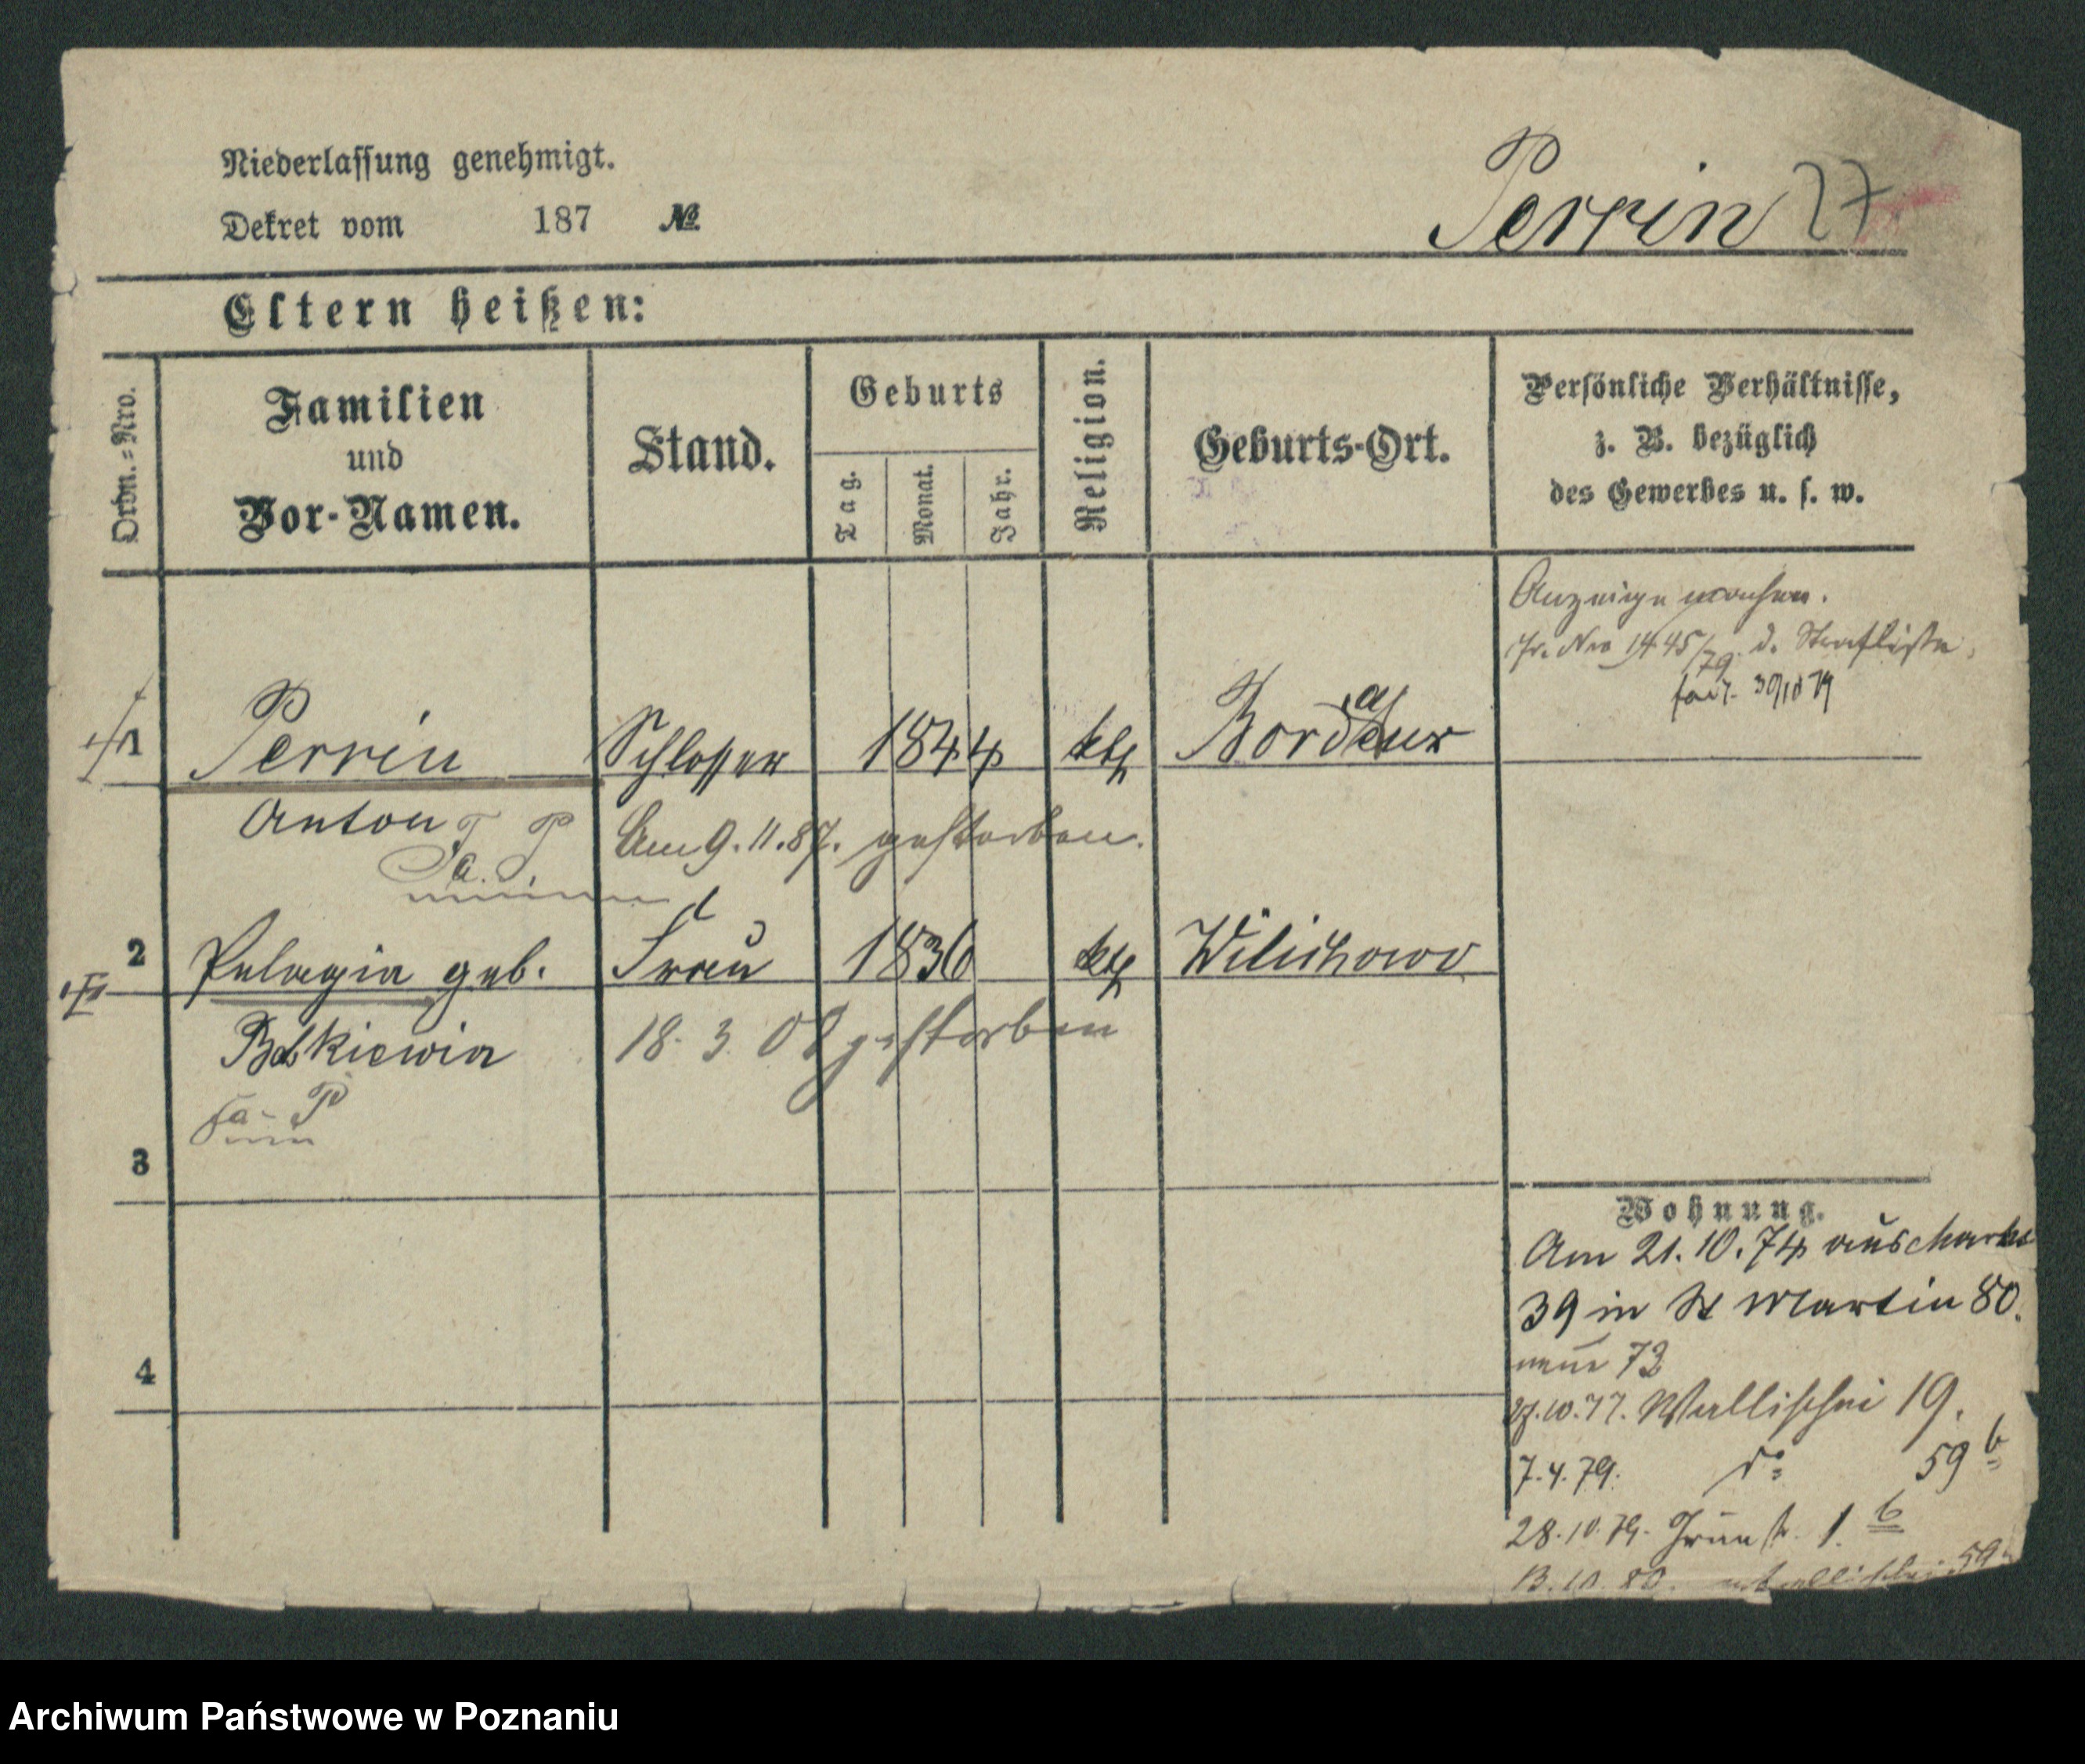 Niederlassung genehmigt.
Dekret vom 187 №
Perrin 27
Eltern heißen:
Ordn.=Nro.
Familien
und
Vor-Namen.
Stand.
Geburts
Tag.
Monat.
Jahr.
Religion.
Geburts-Ort.
Persönliche Verhältnisse,
z. B. bezüglich
des Gewerbes u. s. w.
Anzeige machen.
Nro 1445/79 d. Strafliste
1 Perrin Schlosser 1844 kth Bordeaux
Anton Am 9.11.87. gestorben.
2 Pelagia geb. Frau 1836 kth Wilichowo
18. 3. 08 gestorben
3
4
Wohnung.
Am 21.10.74 aus
39 in St Martin 80.
neue 73
27.10.77. Wallischei 19.
7.4.79. do 59 b
28.10.79. Grünstr. 1. b
13.10.80. Wallischei 59
Archiwum Państwowe w Poznaniu